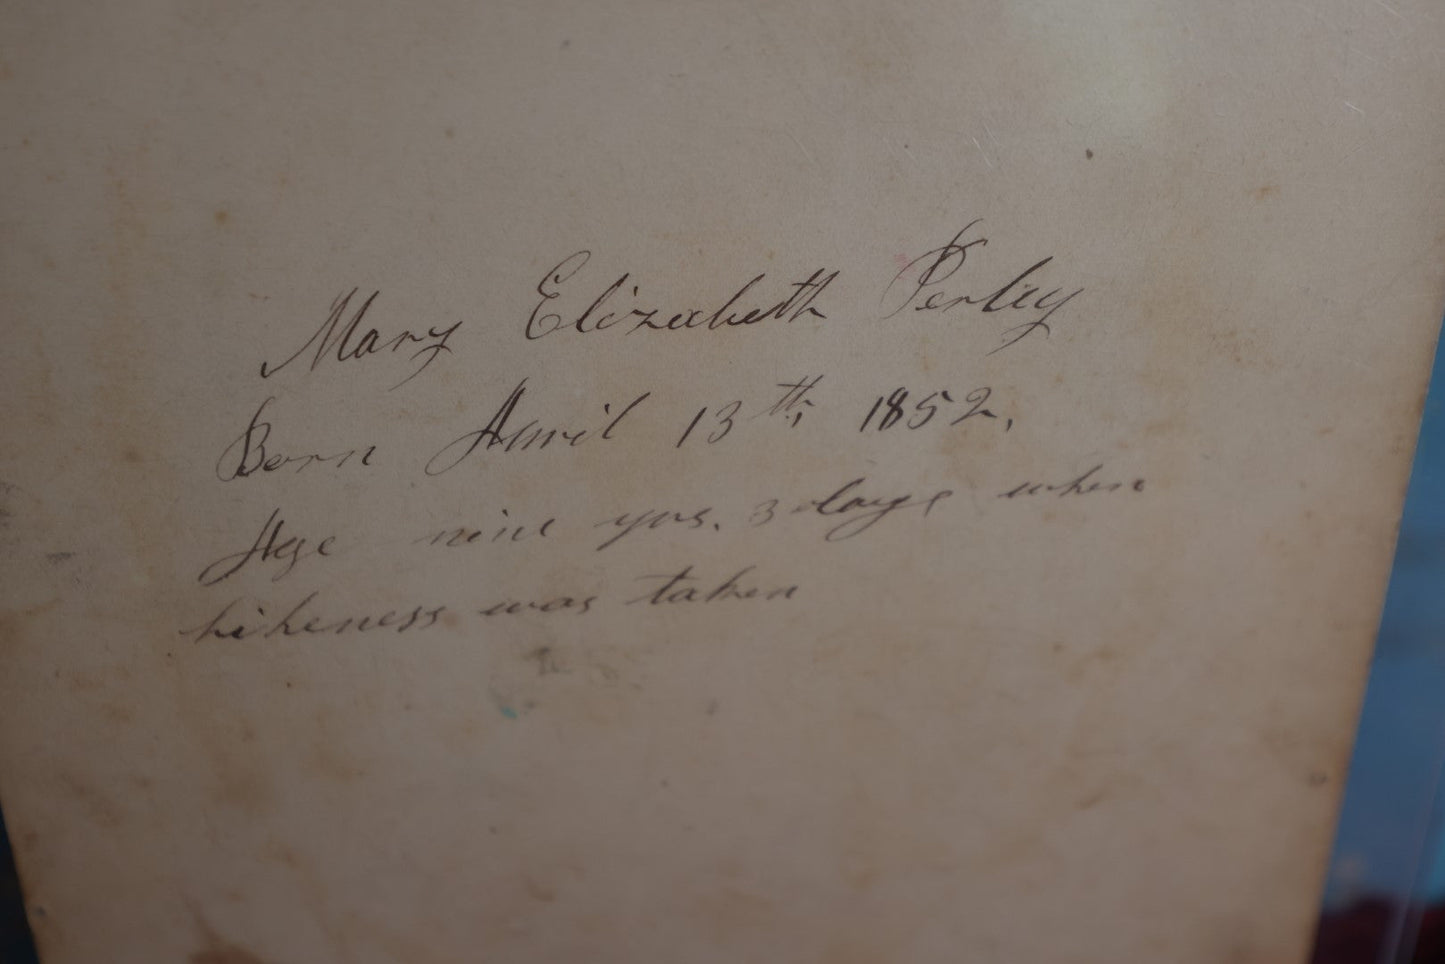 Mary Elizabeth Perley
Born April 13th, 1852,
Age nine yrs. 3 days when
likeness was taken